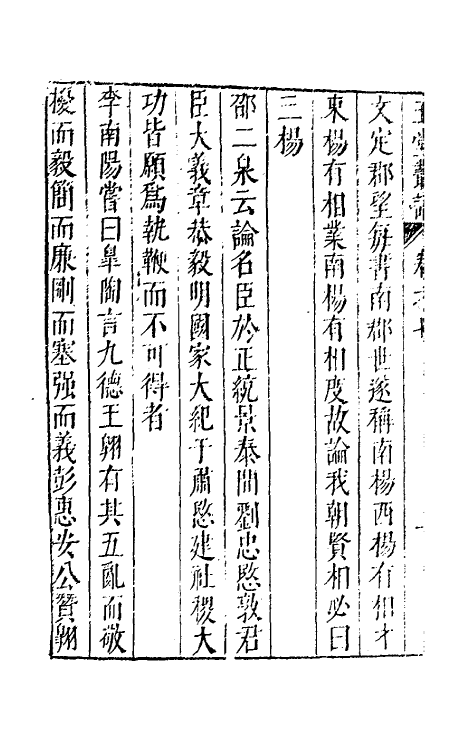 玉堂叢語 卷之
文定郡望每書南郡世遂稱南楊西楊有相才
東楊有相業南楊有相度故論我朝賢相必曰
三楊
邵二泉云論名臣於正統景泰間劉忠愍敦君
臣大義章恭毅明國家大紀于肅愍建社稷大
功皆願爲執鞭而不可得者
李南陽嘗曰臯陶言九德王翺有其五亂而敬
擾而毅簡而廉剛而塞强而義彭惠安公贊翺